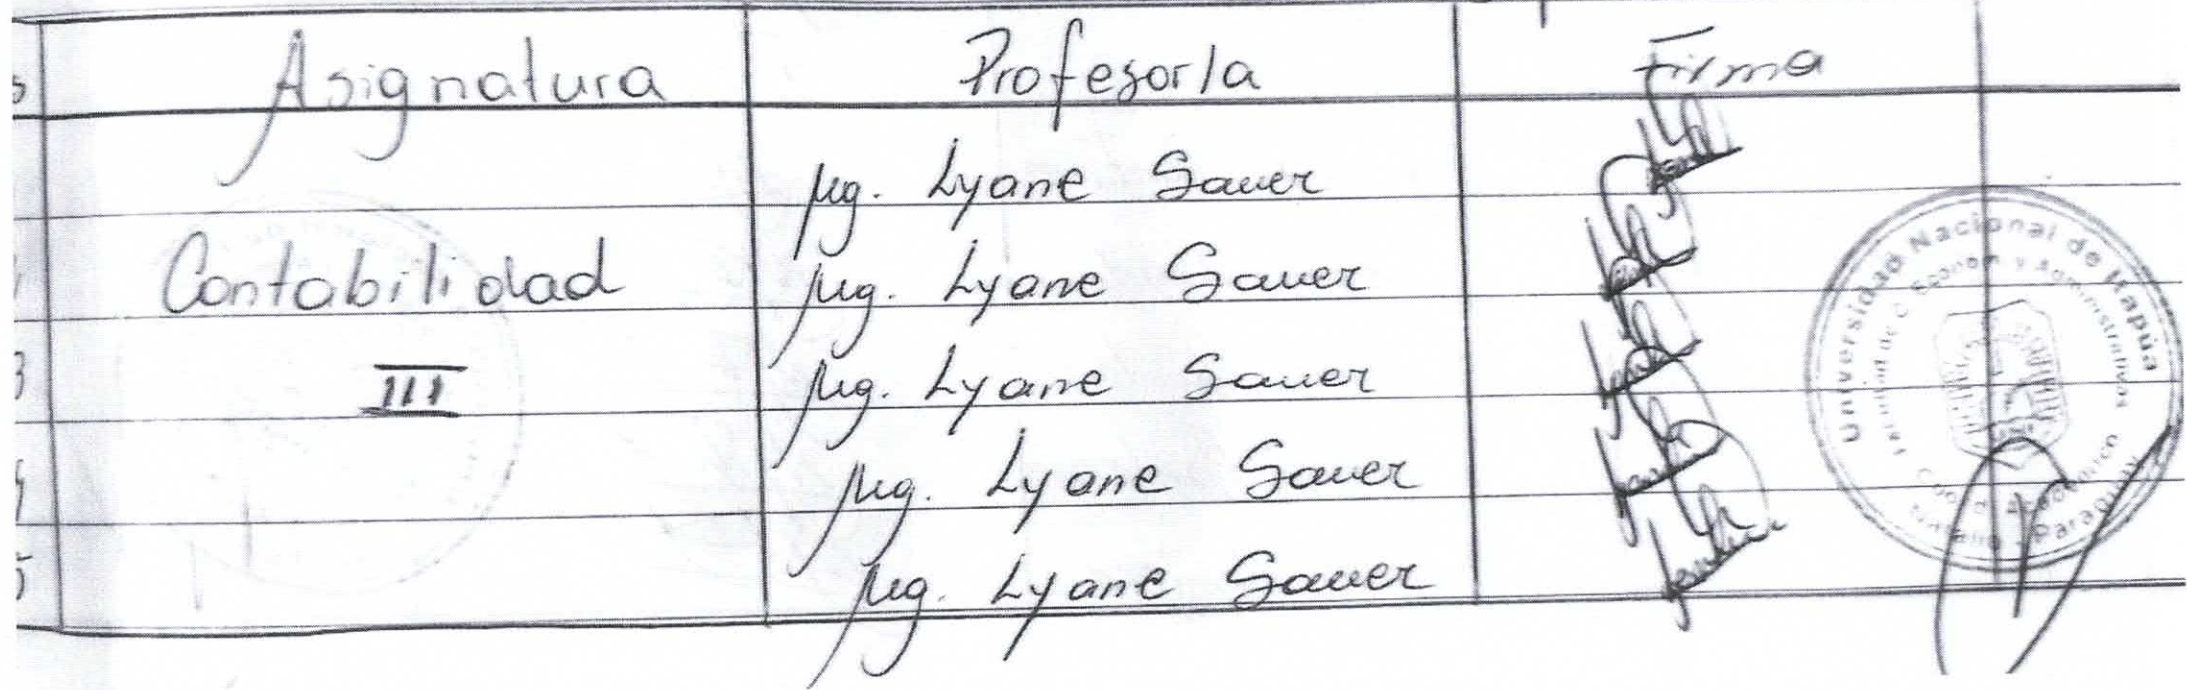 Asignatura Profesor/a Firma
Mg. Lyane Sauer
Contabilidad Mg. Lyane Sauer
3 III Mg. Lyane Sauer
Mg. Lyane Sauer
5 Mg. Lyane Sauer
Universidad Nacional de Itapúa
Facultad de C. Econom. y Administrativas
Coord. Académico
Paraguay